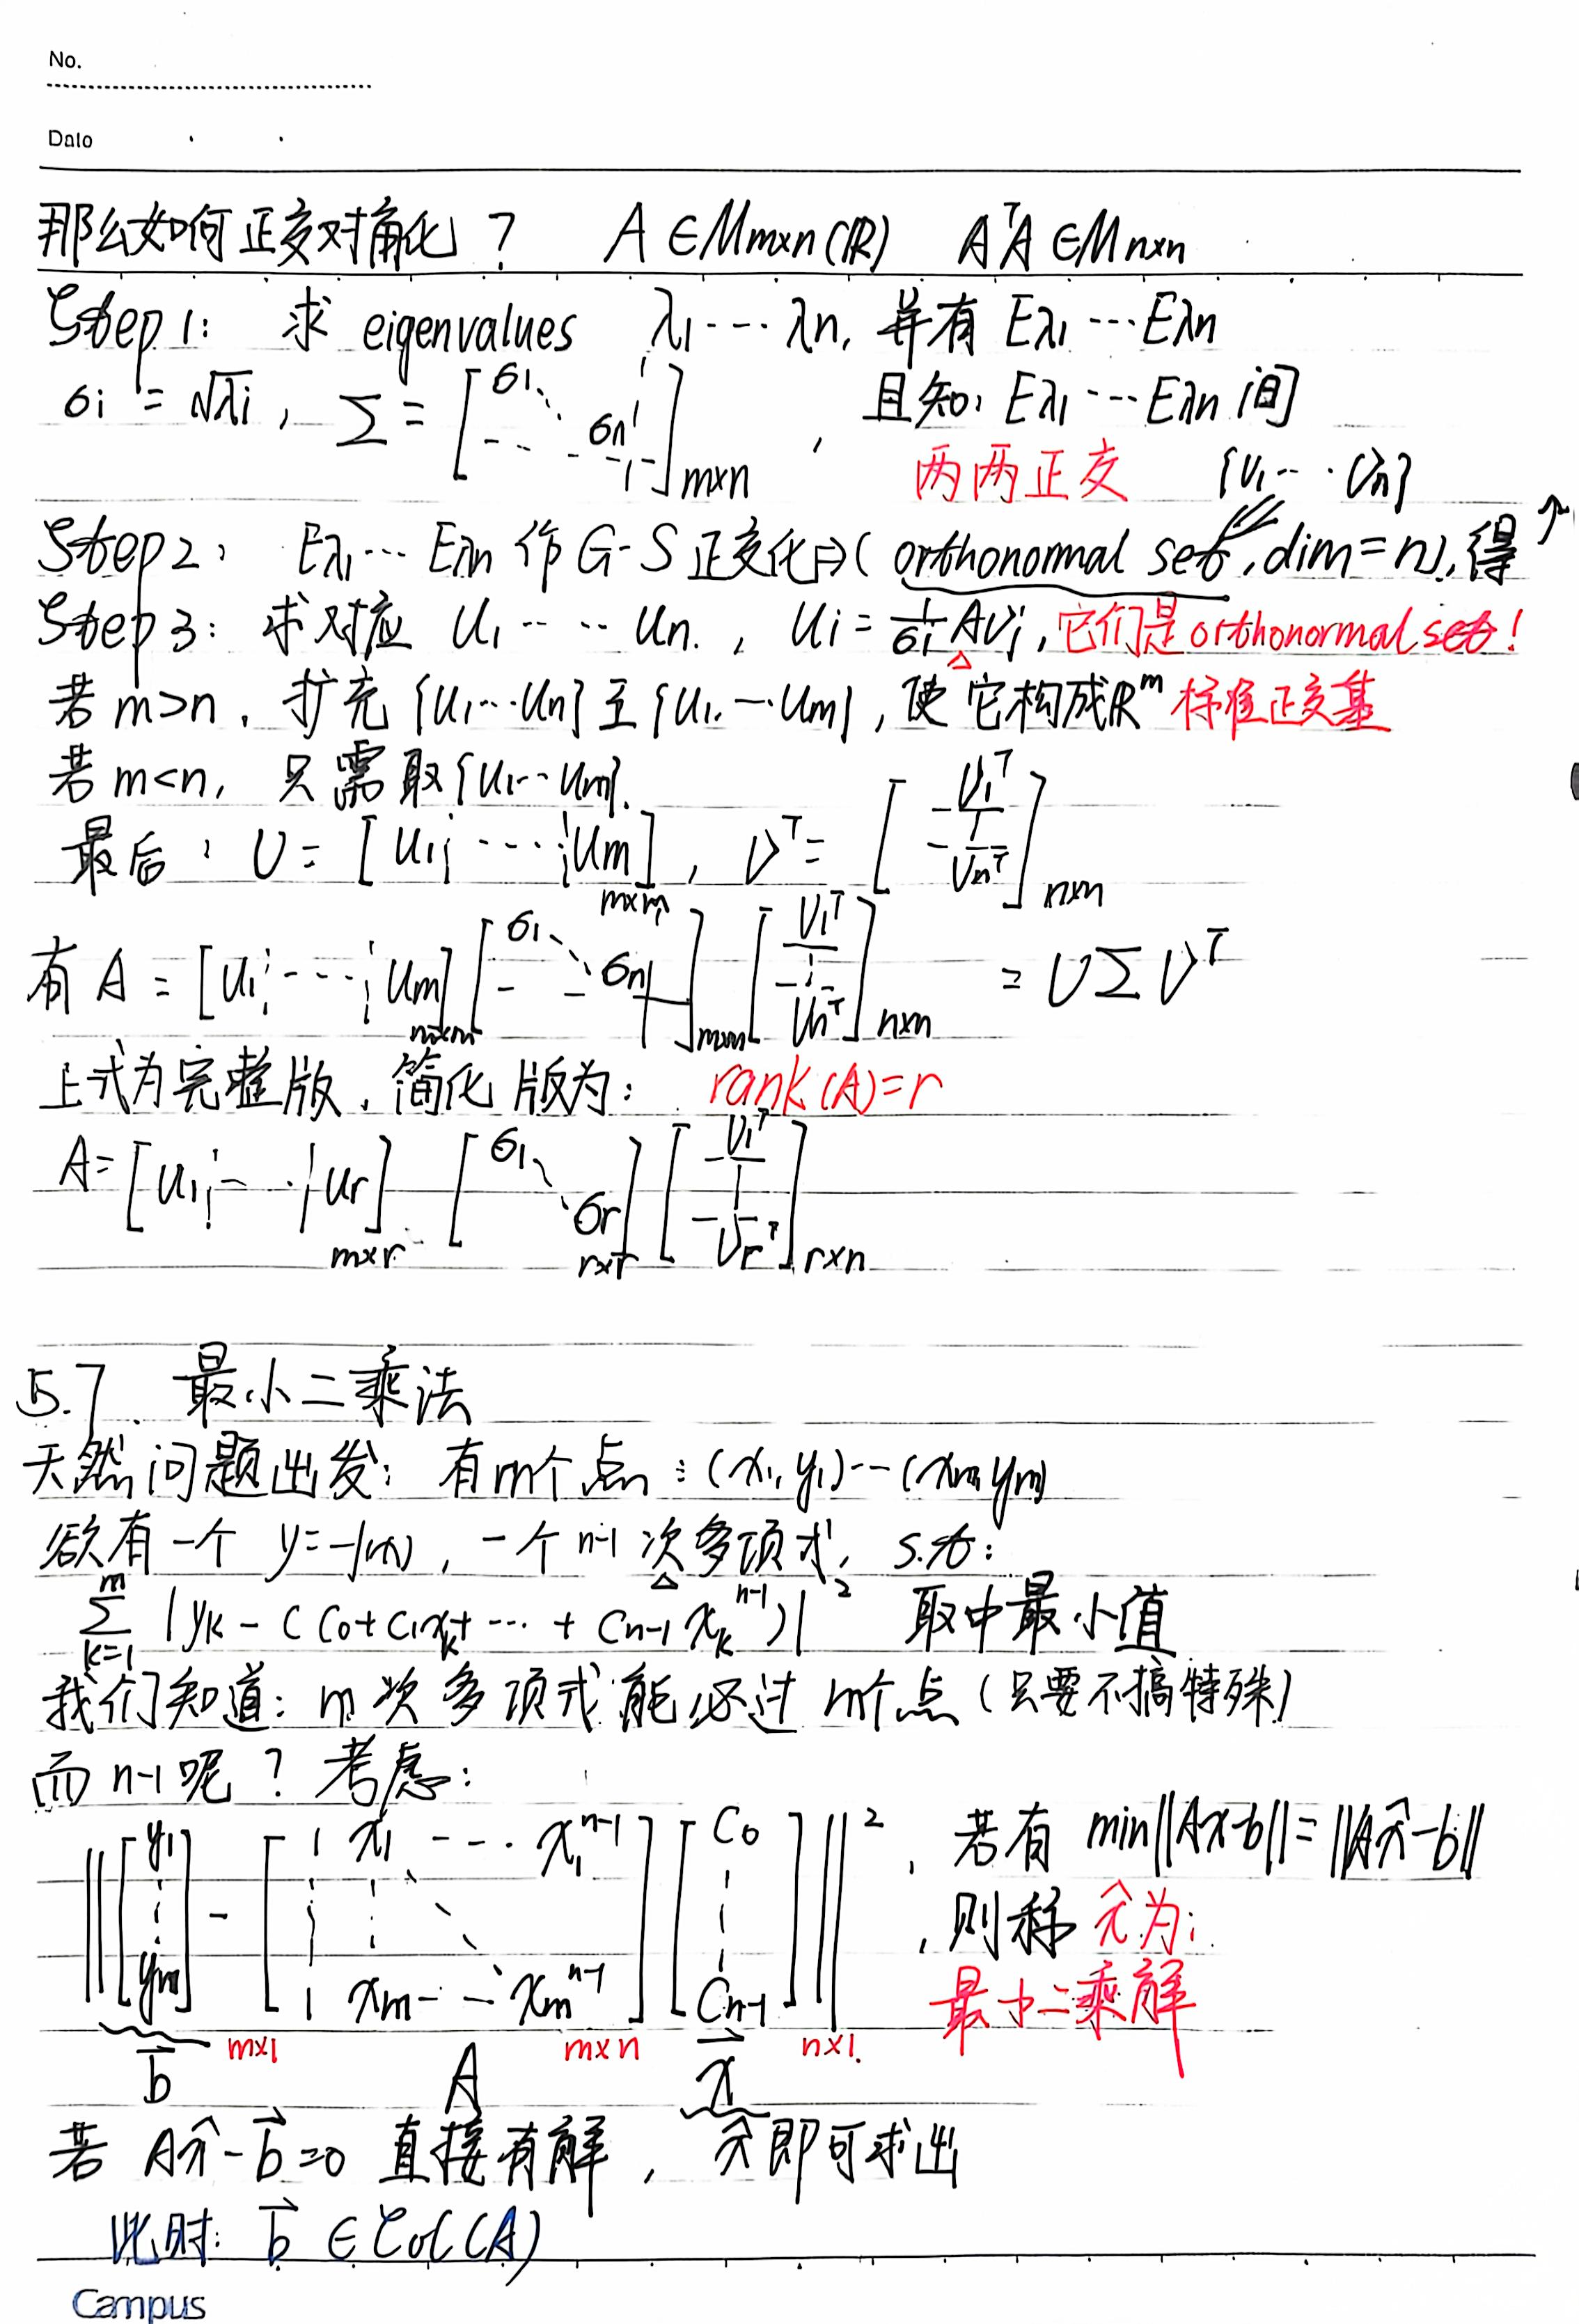 No.
Date
那么如何正交对角化? A∈Mm×n(ℝ) AᵀA∈Mn×n
Step 1: 求 eigenvalues λ1⋯λn, 并有 Eλ1⋯Eλn
σi = √λi, Σ = [σ1 ⋱ σn]m×n, 且知: Eλ1⋯Eλn 间
两两正交 {v1⋯vn}
Step 2: Eλ1⋯Eλn 作 G-S 正交化 ⇒ (orthonormal set, dim=n), 得↑
Step 3: 求对应 u1⋯⋯un., ui = 1/σi Avi, 它们是orthonormal set!
若 m>n, 扩充{u1⋯un}至{u1⋯um}, 使它构成ℝᵐ标准正交基
若 m<n, 只需取{u1⋯um}.
最后: U = [u1 ¦⋯¦ um]m×m, Vᵀ = [v1ᵀ ⋮ vnᵀ]n×n
有 A = [u1 ¦⋯¦ um]m×m [σ1 ⋱ σn]m×n [v1ᵀ ⋮ vnᵀ]n×n = UΣVᵀ
上式为完整版, 简化版为: rank(A)=r
A = [u1 ¦⋯¦ ur]m×r [σ1 ⋱ σr]r×r [v1ᵀ ⋮ vrᵀ]r×n
5.7 最小二乘法
天然问题出发: 有m个点: (x1, y1)⋯(xm, ym)
欲有一个 y=f(x), 一个 n-1 次多项式, s.t:
Σ(k=1→m) |yk - (c0+c1xk+⋯+cn-1 xkⁿ⁻¹)|² 取中最小值
我们知道: m次多项式能必过m个点(只要不搞特殊)
而 n-1 呢? 考虑:
‖[y1 ⋮ ym] - [1 x1 ⋯ x1ⁿ⁻¹ ⋮ ⋮ ⋱ 1 xm ⋯ xmⁿ⁻¹] [C0 ⋮ Cn-1]‖², 若有 min‖Ax-b‖=‖Ax̂-b‖
, 则称 x̂为:
最小二乘解
m×1 m×n n×1.
b⃗ A x⃗
若 Ax̂-b⃗=0 直接有解, x̂即可求出
此时: b⃗ ∈ Col(A)
Campus